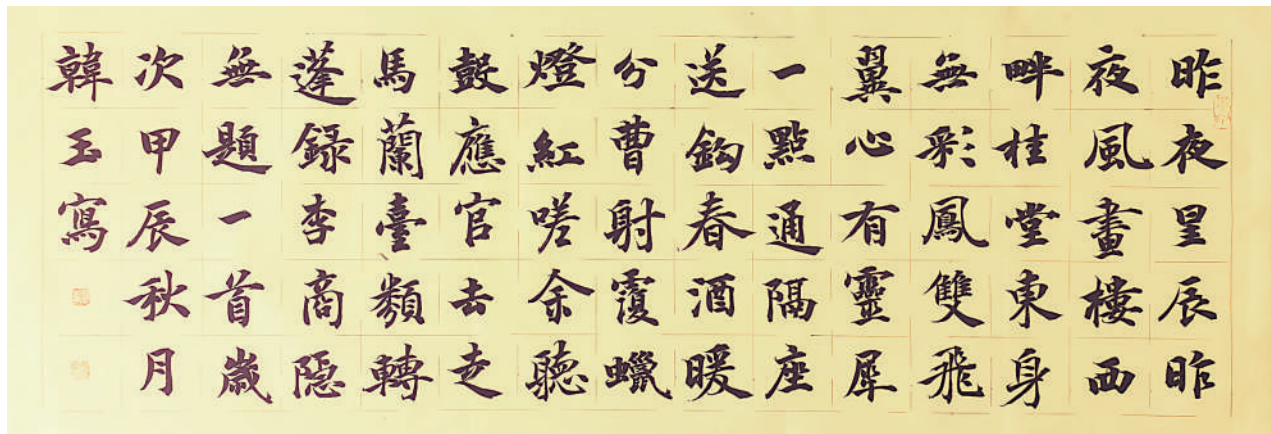 昨夜星辰昨
夜風畫樓西
畔桂堂東身
無彩鳳雙飛
翼心有靈犀
一點通隔座
送鈎春酒暖
分曹射覆蠟
燈紅嗟余聽
鼓應官去走
馬蘭臺類轉
蓬録李商隱
無題一首歲
次甲辰秋月
韓玉寫